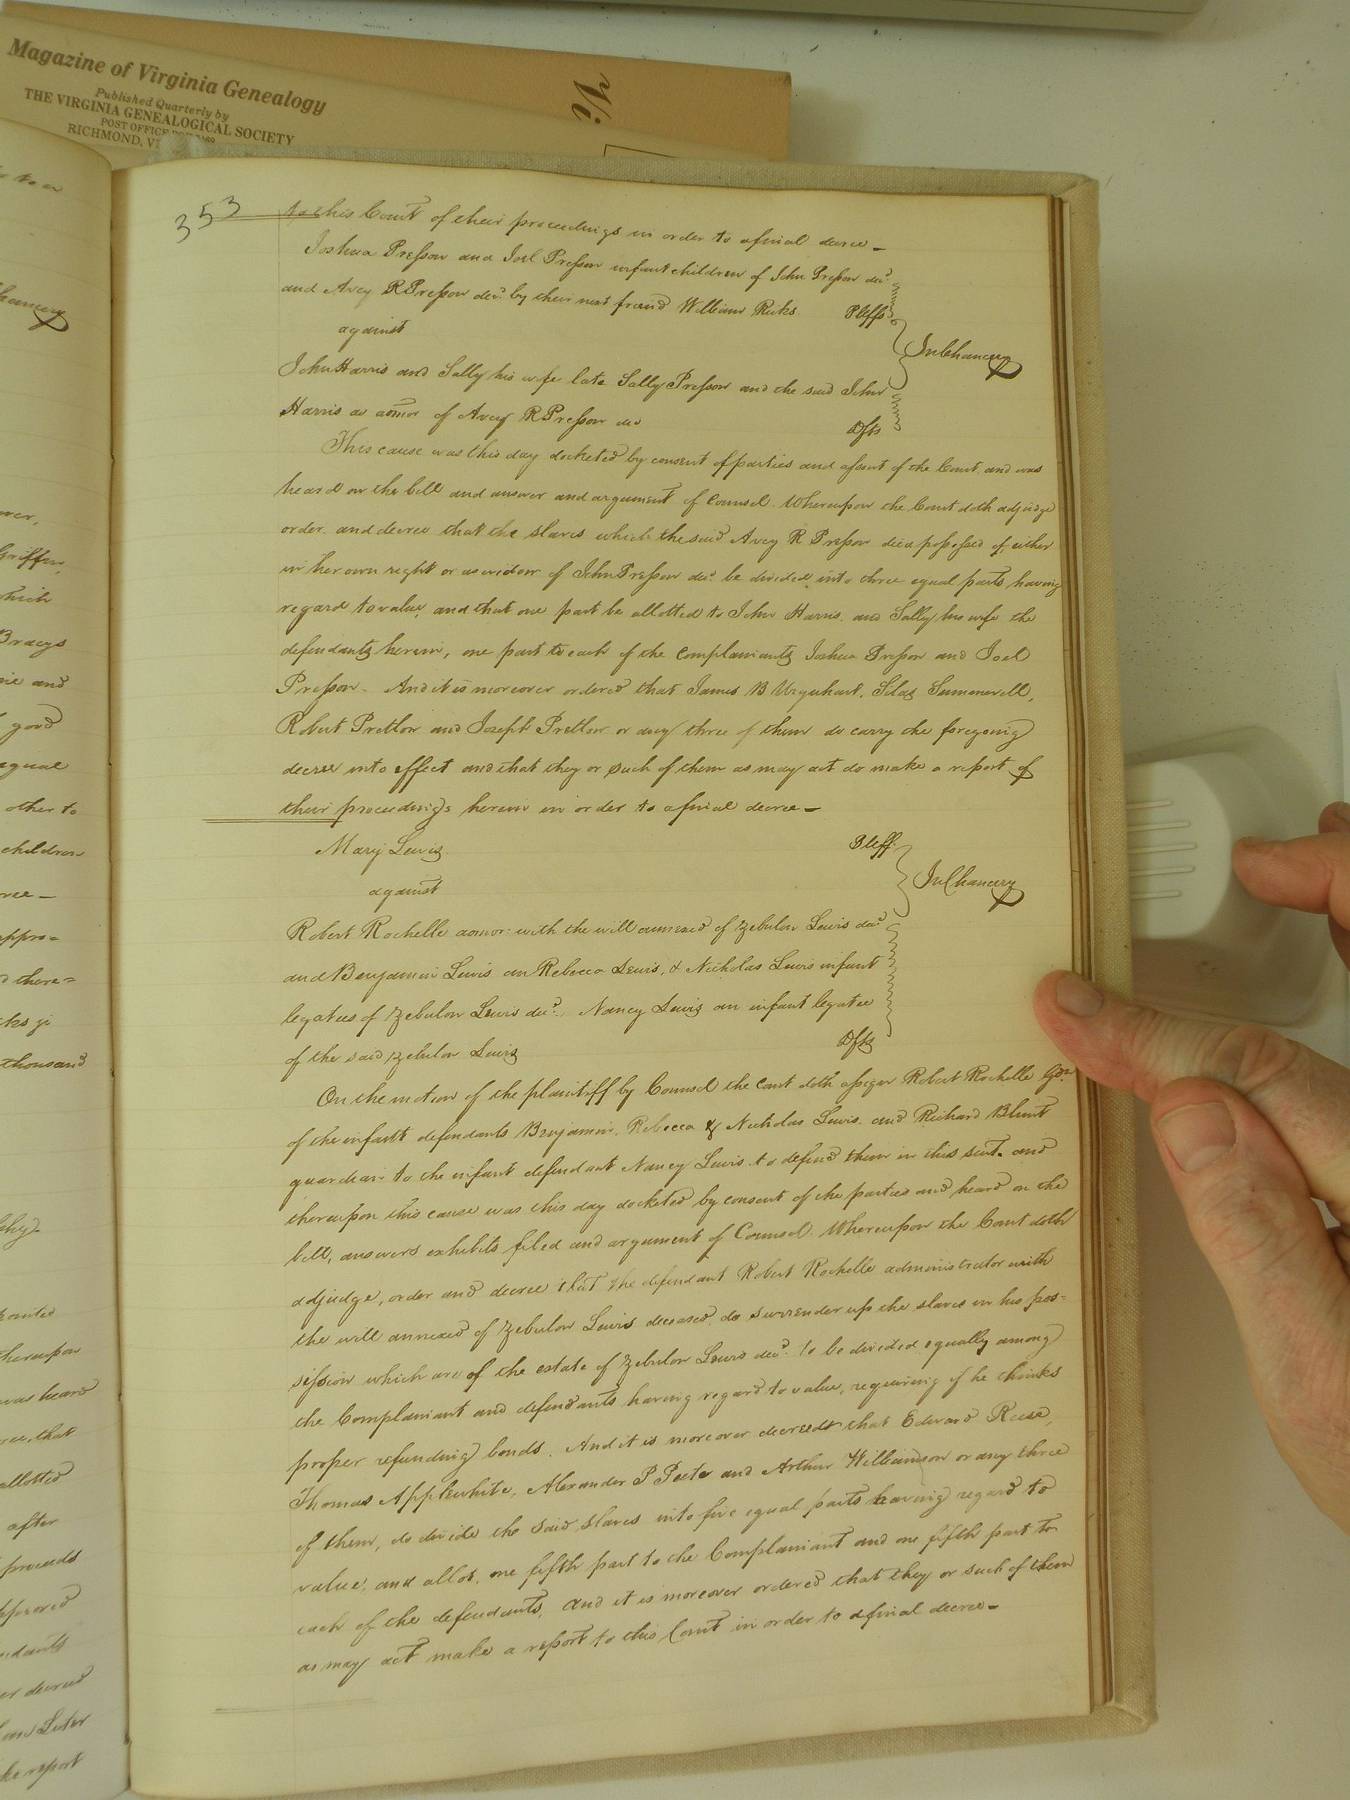 Magazine of Virginia Genealogy
Published Quarterly by
THE VIRGINIA GENEALOGICAL SOCIETY
POST OFFICE
RICHMOND, V
353
to this Court of their proceedings in order to a final decree —
Joshua Presson and Joel Presson infant children of John Presson decd
and Avey R Presson decd. by their next friend William Ricks. Pltffs
against
In Chancery
John Harris and Sally his wife late Sally Presson and the said John
Harris as admor of Avey R Presson decd
Dfts
This cause was this day docketed by consent of parties and assent of the Court, and was
heard on the bill and answer and argument of Counsel. Whereupon the Court doth adjudge
order, and decree that the slaves which the said Avey R Presson died possessed of, either
in her own right or as widow of John Presson decd. be divided into three equal parts, having
regard to value, and that one part be allotted to John Harris, and Sally his wife the
defendants herein, one part to each of the complainants Joshua Presson and Joel
Presson. And it is moreover ordered that James B Urquhart, Silas Summerell,
Robert Pretlow and Joseph Pretlow or any three of them do carry the foregoing
decree into effect and that they or such of them as may act do make a report of
their proceedings herein in order to a final decree —
Mary Lewis Pltff.
against
In Chancery
Robert Rochelle admor: with the will annexed of Zebulon Lewis decd
and Benjamin Lewis an Rebecca Lewis, & Nicholas Lewis infant
legatees of Zebulon Lewis decd., Nancy Lewis an infant legatee
of the said Zebulon Lewis Dfts
On the motion of the plaintiff by Counsel the Court doth assign Robert Rochelle Gdn
of the infant defendants Benjamin, Rebecca & Nicholas Lewis, and Richard Blunt
guardian to the infant defendant Nancy Lewis to defend them in this suit. and
thereupon this cause was this day docketed by consent of the parties and heard on the
bill, answers exhibits filed and argument of Counsel. Whereupon the Court doth
adjudge, order and decree that the defendant Robert Rochelle administrator with
the will annexed of Zebulon Lewis deceased, do surrender up the slaves in his pos=
session which are of the estate of Zebulon Lewis decd. to be divided equally among
the Complainant and defendants having regard to value, requiring if he thinks
proper refunding bonds. And it is moreover decreed that Edward Reese,
Thomas Applewhite, Alexander P Peete and Arthur Williamson or any three
of them, do divide the said slaves into five equal parts having regard to
value, and allot, one fifth part to the Complainant and one fifth part to
each of the defendants, and it is moreover ordered that they or such of them
as may act make a report to this Court in order to a final decree —